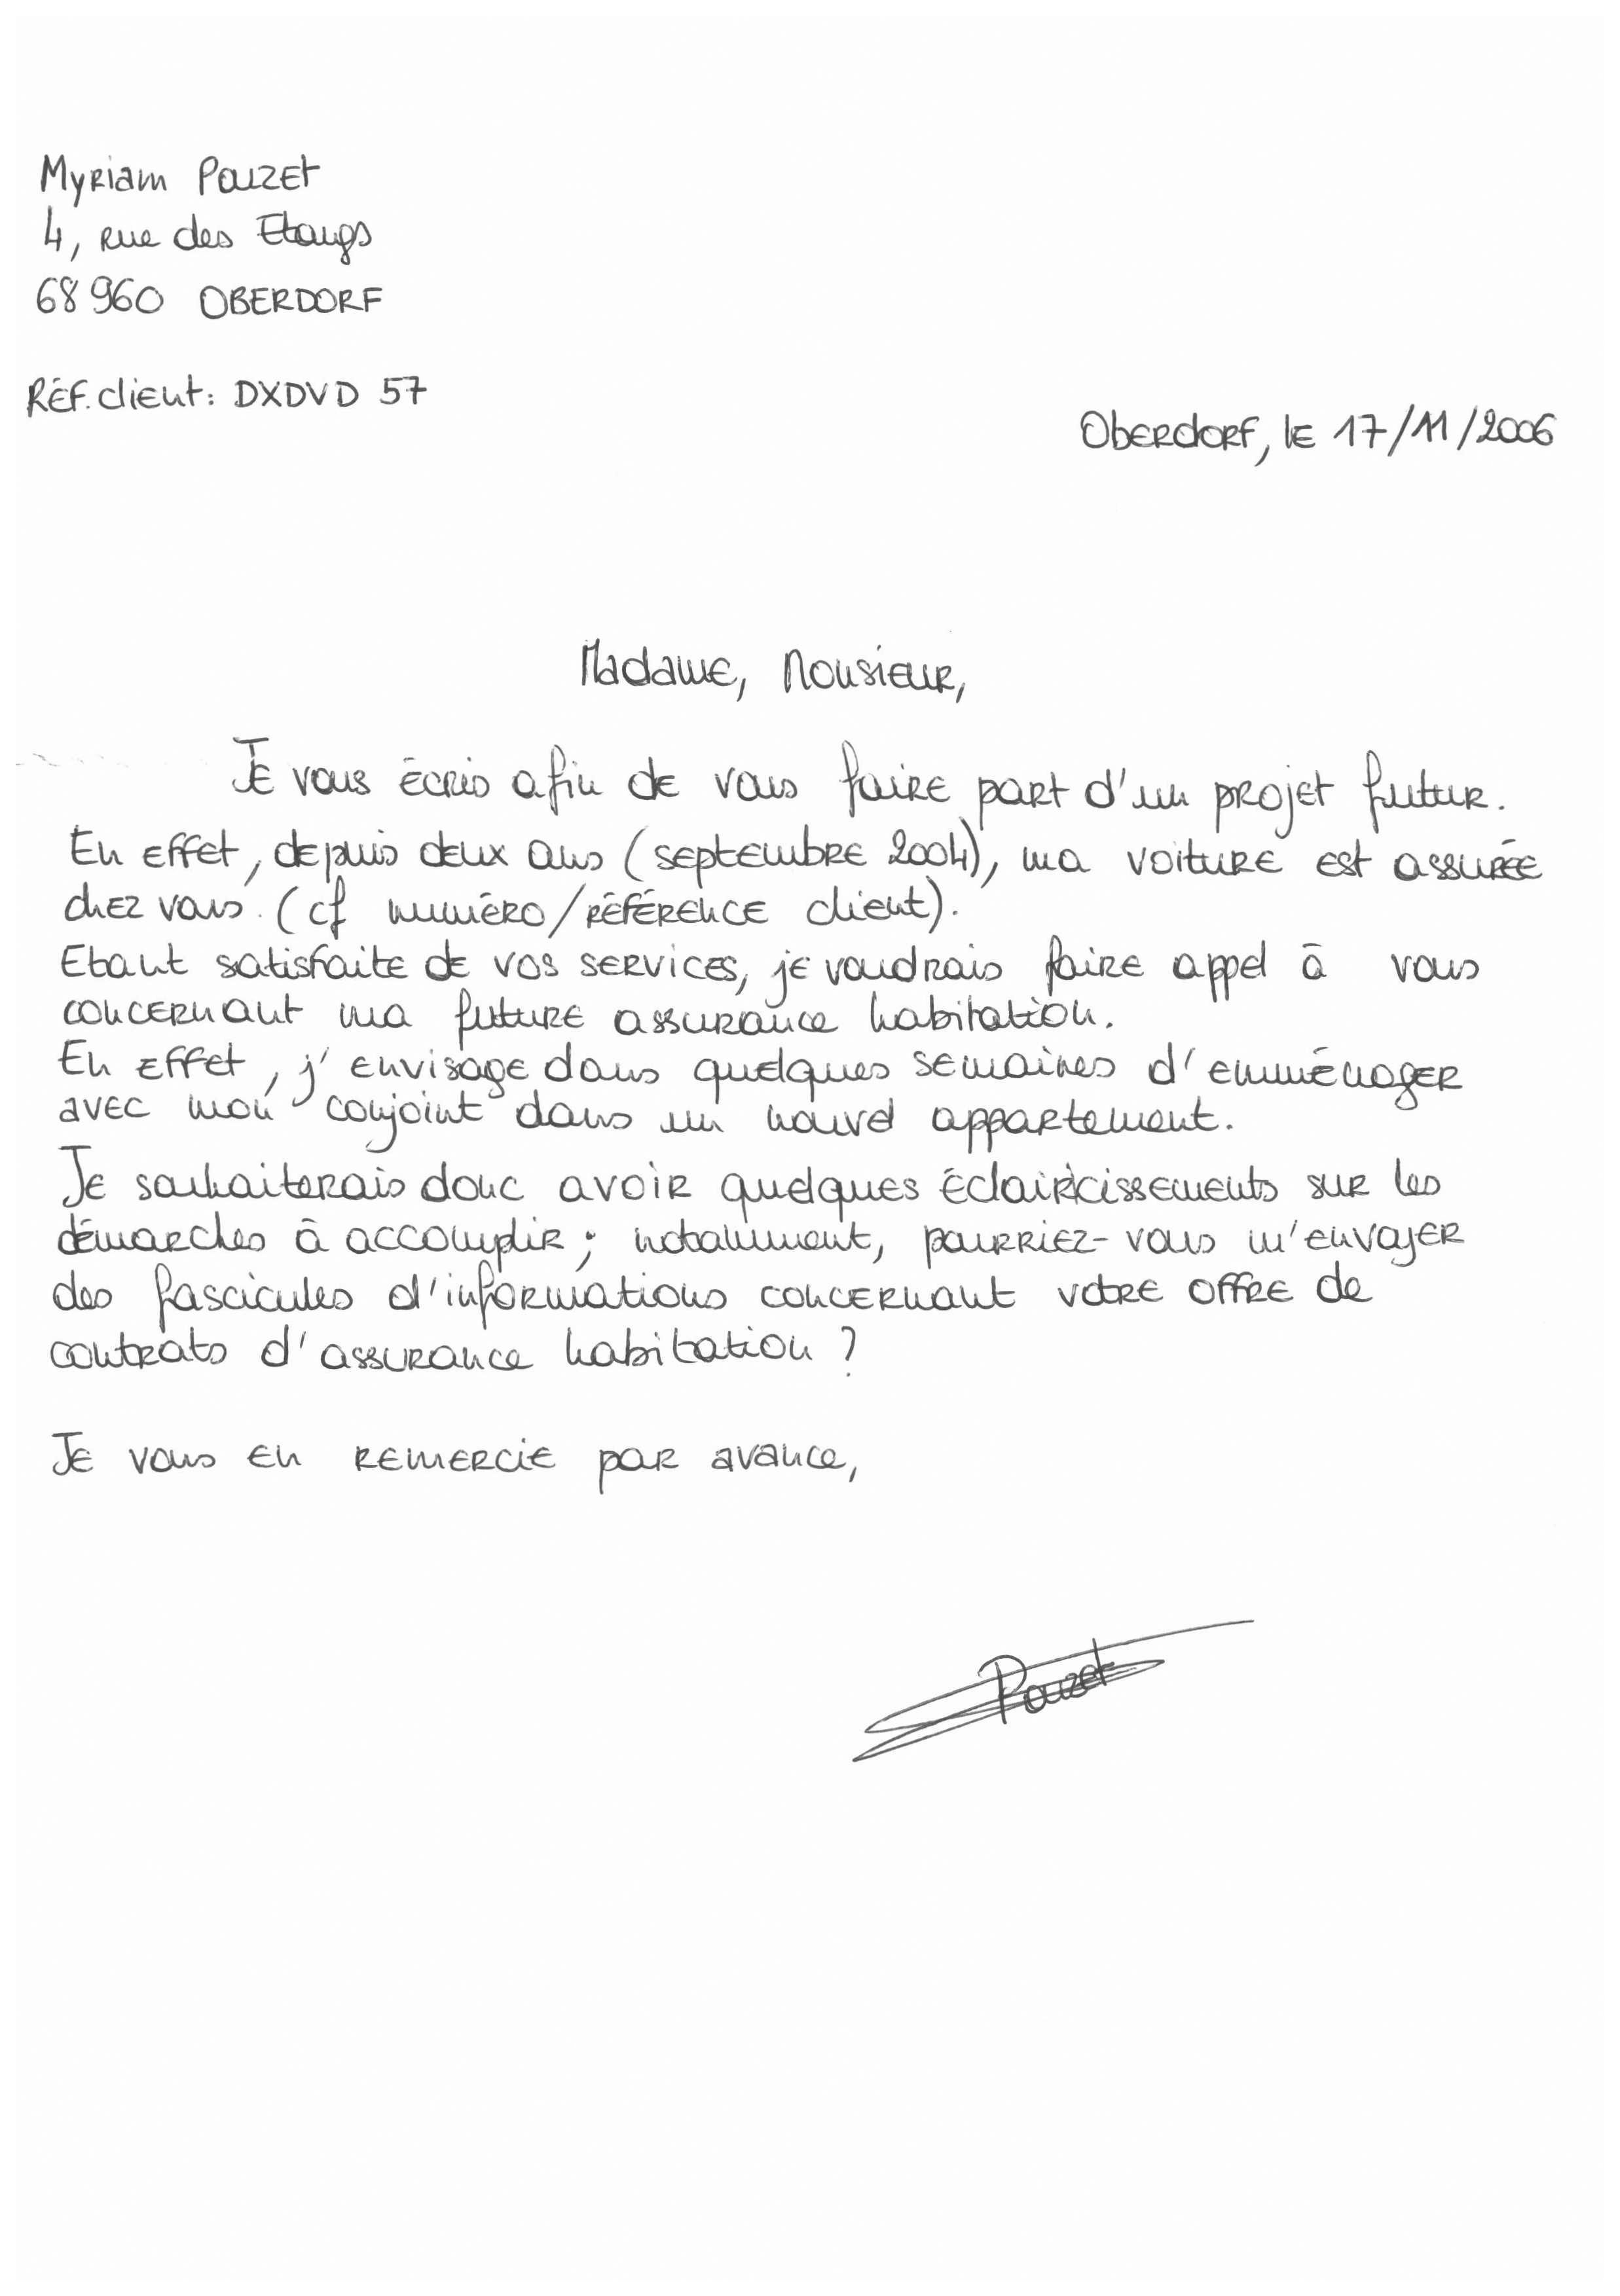 Myriam Pouzet
4, rue des Etangs
68960 OBERDORF
Réf. client: DXDVD 57
Oberdorf, le 17/11/2006
Madame, Monsieur,
Je vous écris afin de vous faire part d'un projet futur.
En effet, depuis deux ans (septembre 2004), ma voiture est assurée
chez vous. (cf numéro/référence client).
Etant satisfaite de vos services, je voudrais faire appel à vous
concernant ma future assurance habitation.
En effet, j'envisage dans quelques semaines d'emménager
avec mon conjoint dans un nouvel appartement.
Je souhaiterais donc avoir quelques éclaircissements sur les
démarches à accomplir; notamment, pourriez-vous m'envoyer
des fascicules d'informations concernant votre offre de
contrats d'assurance habitation ?
Je vous en remercie par avance,
Pouzet